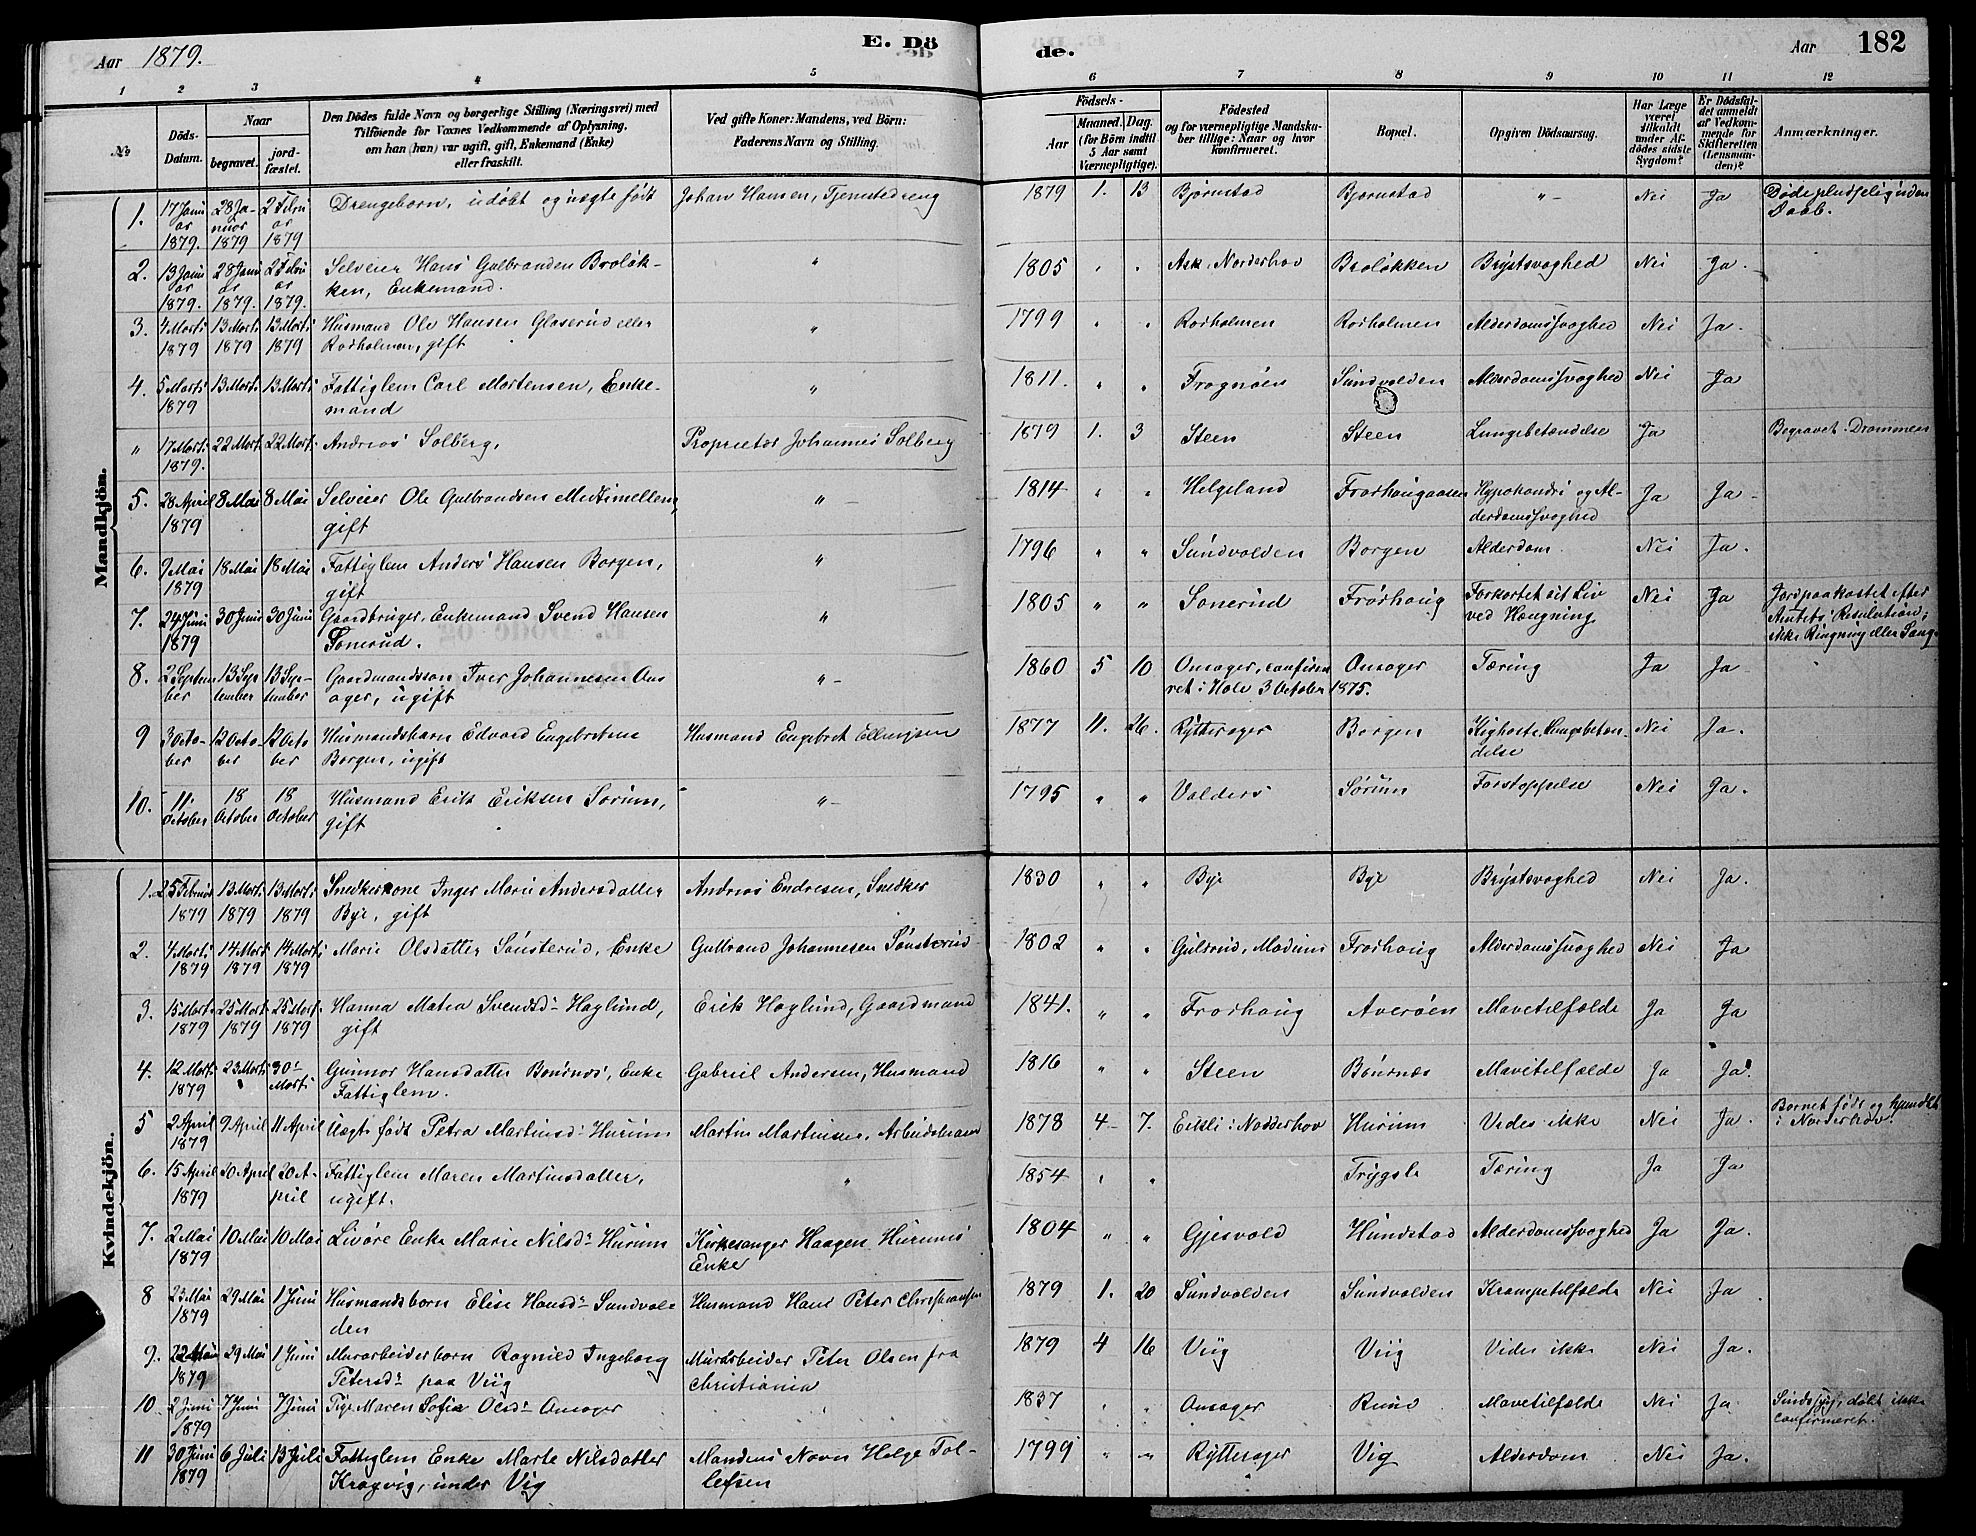 Aar 1879.
E. Dö
de.
Aar
182
1 2 3 4 5 6 7 8 9 10 11 12
№
Döds-Datum.
Naar
begravet.
jord-fæstet.
Den Dödes fulde Navn og borgerlige Stilling (Næringsvei) med
Tilföiende for Voxnes Vedkommende af Oplysning,
om han (hun) var ugift, gift, Enkemand (Enke)
eller fraskilt.
Ved gifte Koner: Mandens, ved Börn:
Faderens Navn og Stilling.
Födsels-
Aar
Maaned. Dag.
(for Börn indtil
5 Aar samt
Værnepligtige).
Födested
og for værnepligtige Mandska-
ber tillige: Naar og hvor
konfirmeret.
Bopæl.
Opgiven Dödsaarsag.
Har Læge
været
tilkaldt
under Af-
dödes sidste
Sygdom?
Er Dödsfal-
det anmeldt
af Vedkom-
mende for
Skifteretten
(Lensman-
den)?
Anmærkninger.
Mandkjön.
1. 17 Januar 1879. 28 Januar 1879 2 Februar 1879 Drengebarn, udøbt og uægte født Johan Hansen, Tjenstedreng 1879 1. 13 Bjørnstad Bjørnstad " - Nei Ja Døde pludselig uden Daab.
2. 13 Januar 1879. 28 Januar 1879. 2 Februar 1879. Selveier Hans Gulbrandsen Broløkken, Enkemand. " 1805 " " Ask, Norderhov Broløkken Brystsvaghed Nei Ja.
3. 4 Marts 1879 13 Marts 1879 13 Marts 1879 Husmand Ole Hansen Glaserud eller Rørholmen, gift " 1799 " " Rørholmen Rørholmen Alderdomssvaghed Nei Ja.
4. 5 Marts 1879 13 Marts 13 Marts Fattiglem Carl Mortensen, Enkemand " 1811. " " Frognøen Sundvolden Alderdomssvaghed Nei Ja
" 17 Marts 1879. 22 Mart. 22 Mart. Andreas Solberg, Proprietær Johannes Solberg 1879 1. 3 Steen Steen Lungebetændelse Ja Begravet. Drammen
5. 28 April 1879 8 Mai 8 Mai Selveier Ole Gulbrandsen, gift " - 1814 " " Helgeland Frørhaugaasen Hypokondri og Alderdomssvaghed Ja Ja -
6. 9 Mai 1879 18 Mai 18 Mai Fattiglem Anders Hansen Borgen, gift " 1796 " " Sundvolden Borgen Alderdom. Nei Ja.
7. 24 Juni 1879 30 Juni 30 Juni Gaardbruger, Enkemand Svend Hansen Sonerud. " 1805 " " Sonerud Frørhaug Forkortet sit Liv ved Hængning Nei Ja Jordpaakastet efter Amtets Resolution; ikke Ringning eller Sang
8. 2 September 13 September 13 September Gaardmandssøn Iver Johannesen Onsager, ugift " - 1860 5 10 Onsager, confirmeret i Hole 3 October 1875. Onsager Tæring Ja Ja
9 3 October 12 October 12 October Husmandsbarn Edvard Engebretsen Borgen, ugift Husmand Engebret Ellingsen 1877 11. 26. Rytterager Borgen Kighoste, Lungebetændelse Nei Ja.
10. 11. October 18 October 18 October Husmand Erik Eriksen Sørum, gift " - 1795 " " Valders Sørum Forstoppelse Nei Ja.
Kvindekjön.
1. 25 Februar 1879 13 Mart. 1879 13 Mart. 1879 Snedkerkone Inger Marie Andersdatter Bye, gift Andreas Endresen, Snedker 1830 " " Bye Bye Brystsvaghed Nei Ja.
2. 4 Marts 1879 14 Marts 1879 14 Marts 1879 Marie Olsdatter Sønsterud, Enke Gulbrand Johannesen Sønsterud 1802 " " Gulsrud, Modum Frørhaug Alderdomssvaghed Nei Ja
3. 15 Marts 1879 25 Mart. 1879 25 Mart. 1879 Hanna Matea Svendsd: Haglund, gift Erik Haglund, Gaardmand 1841. " " Frørhaug Averøen Mavetilfælde Ja Ja
4. 12 Marts 1879 23 Marts 30 Marts Gunnor Hansdatter Bønsnæs, Enke Fattiglem. Gabriel Andersen, Husmand 1816 " " Steen Bønsnæs Mavetilfælde Ja Ja.
5 2 April 1879 9 April 11 April Uægte født Petra Martinsd: Hurum Martin Martinsen, Arbeidsmand 1878 4 - 7. Eikli i Nordderhov Hurum Vides ikke Nei Ja. Barnet født og hjemdøbt i Norderhov.
6. 15 April 1879 20 April 20 April Fattiglem Maren Martinsdatter, ugift. " 1854 " " Trygsle Tæring Ja Ja
7. 2 Mai 1879 10 Mai 10 Mai Livøre Enke Marie Nilsd: Hurum Kirkesanger Haagen Hurums Enke 1804 " " Gjesvold Hundstad Alderdomssvaghed Ja Ja.
8 23 Mai 1879 29 Mai 1 Juni Husmandsbarn Elise Hansd: Sundvolden Husmand Hans Peter Christiansen 1879 1. 20 Sundvolden Sundvolden Krampetilfælde Nei Ja
9. 22 Mai 1879 29 Mai 1 Juni Murarbeiderbarn Ragnild Ingeborg Petersd: paa Viig Murarbeider Peter Olsen fra Christiania 1879 4 16 Viig Viig Vides ikke Nei Ja.
10. 2 Juni 1879 7 Juni 7 Juni Pige Maren Sofie Olsd: Onsager 1837 " " Onsager Mavetilfælde Nei Ja Sindssyg, døbt ikke confirmeret.
11 30 Juni 1879 6 Juli 13 Juli Fattiglem Enke Marte Nilsdatter Kragvig, under Vig Mandens Navn Helge Tollefsen 1799 " " Rytterager Vig Alderdom Nei Ja.